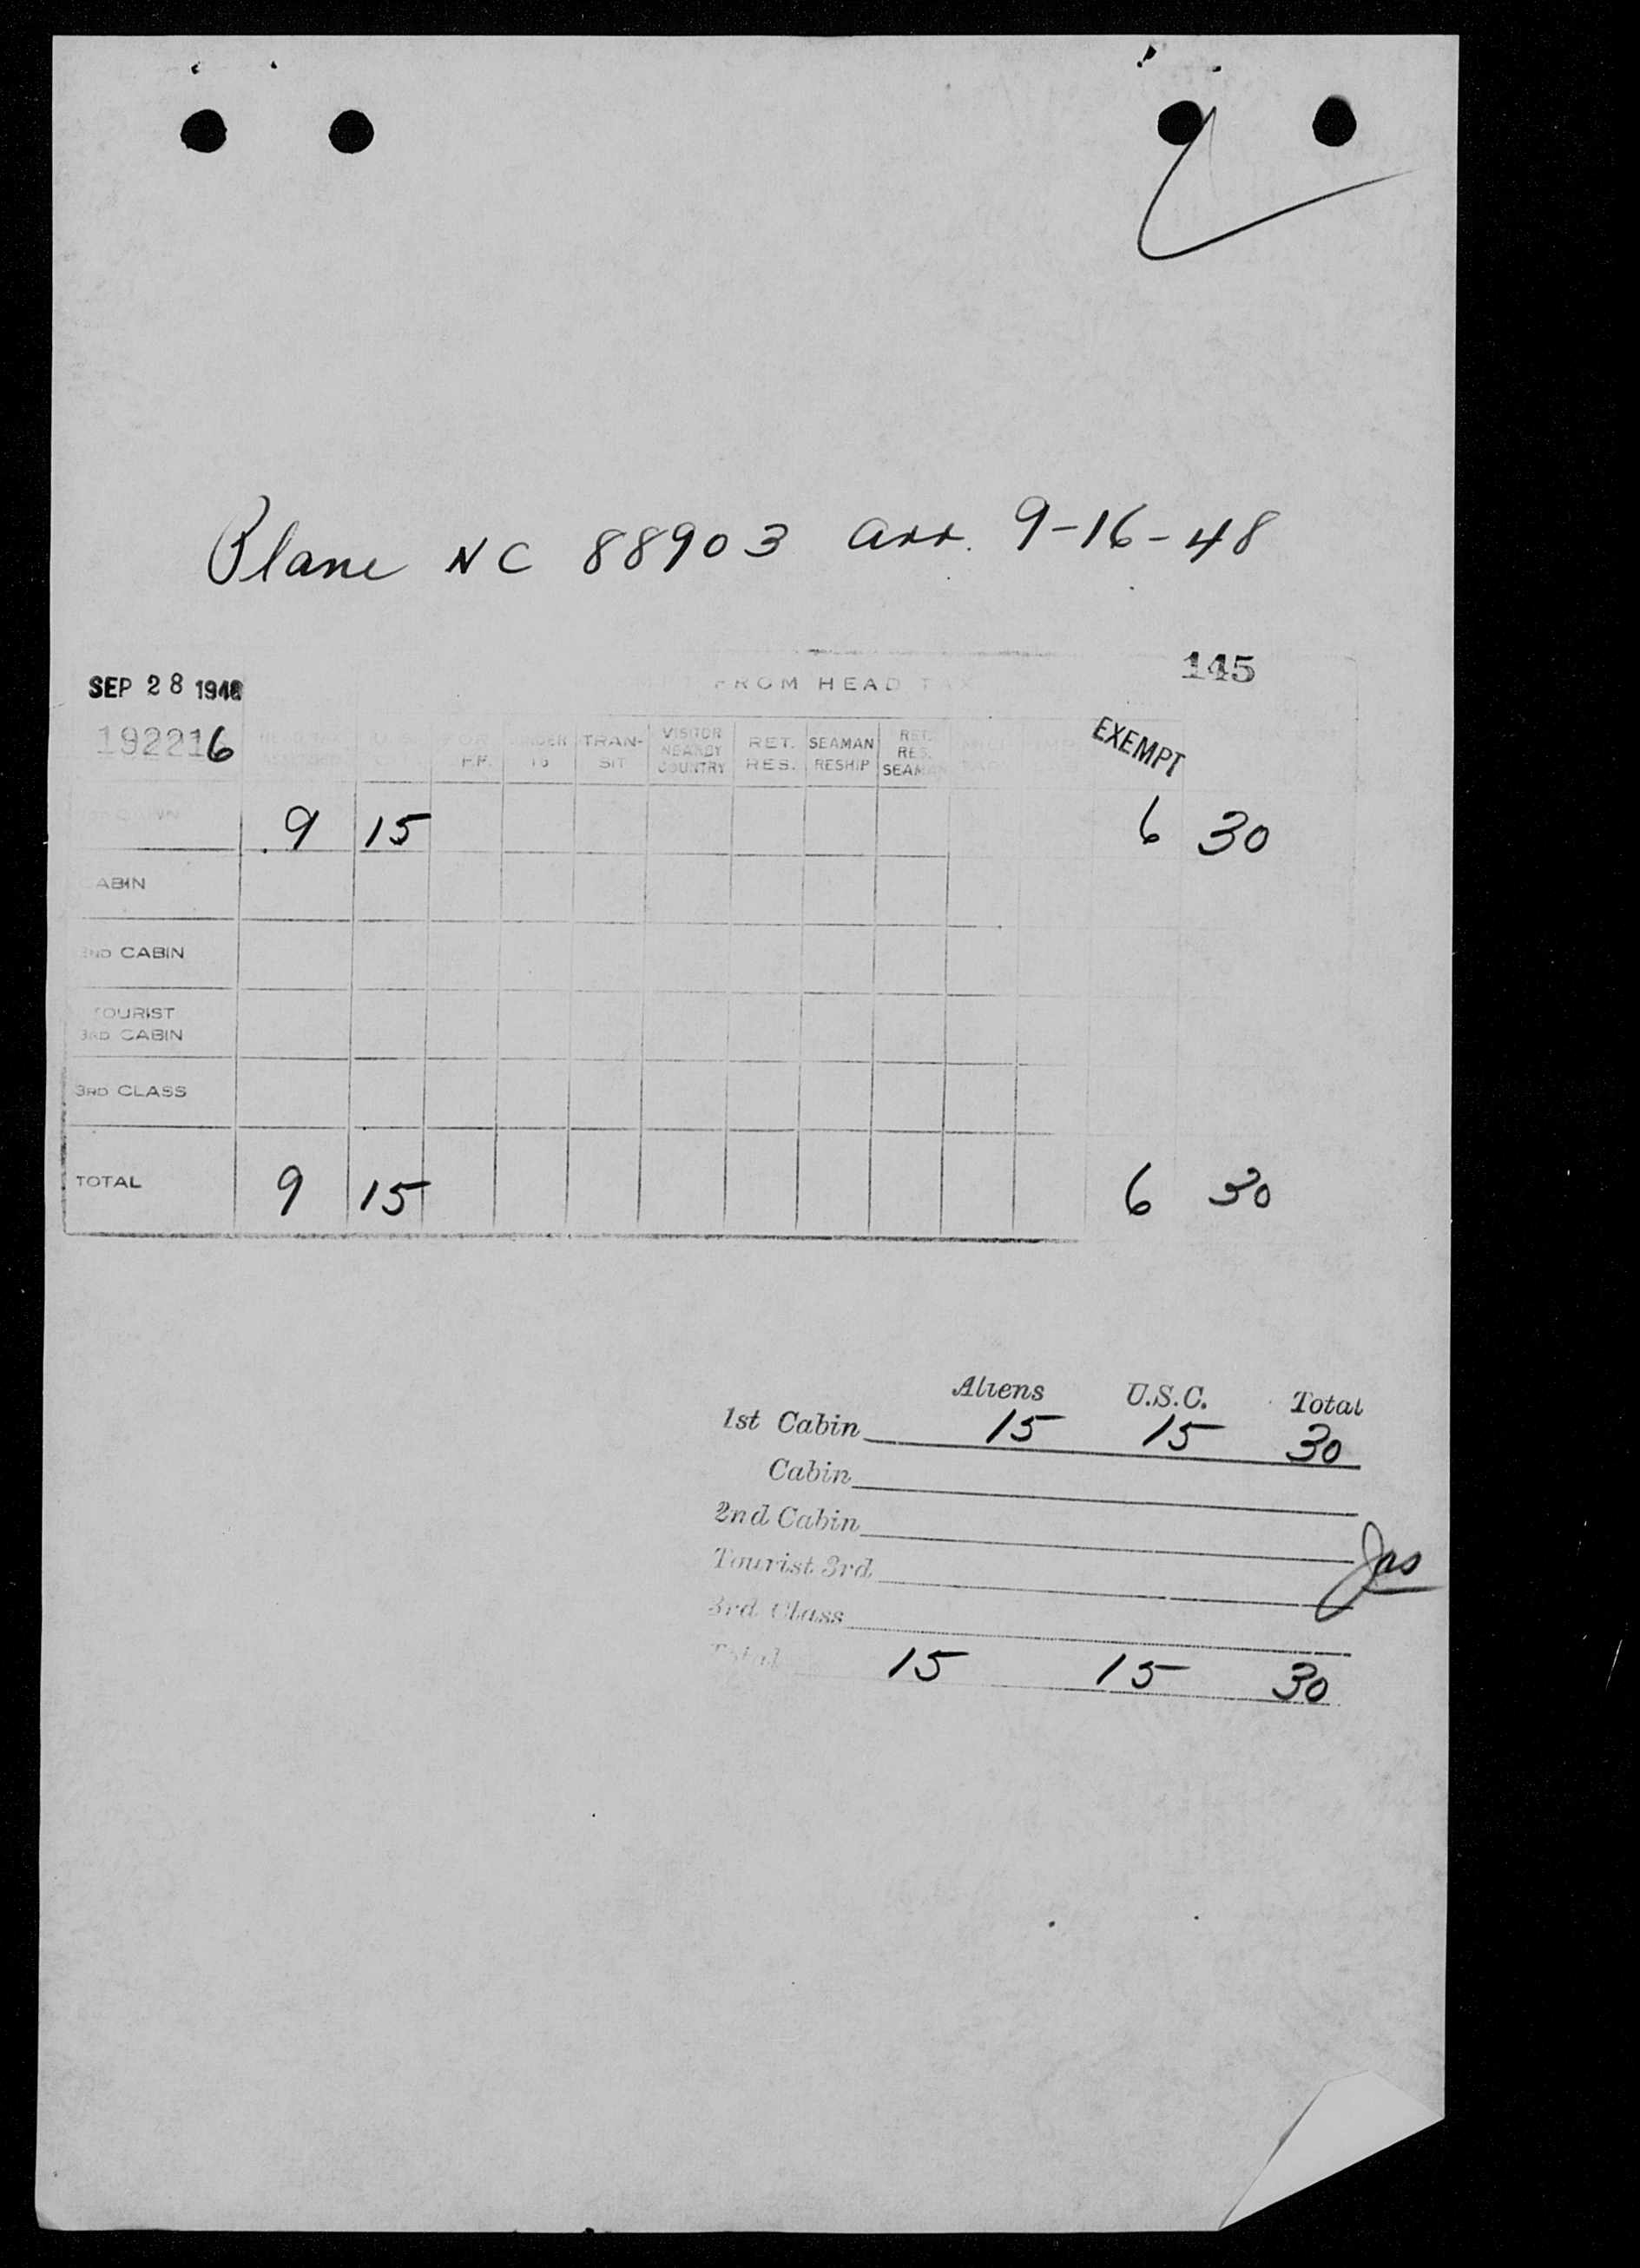 Plane NC 88903 arr. 9-16-48
145
SEP 28 1948
FROM HEAD TAX
192216
UNDER 16
TRAN-SIT
VISITOR NEARBY COUNTRY
RET. RES.
SEAMAN RESHIP
RET. RES. SEAMAN
EXEMPT
9 15 6 30
CABIN
2ND CABIN
TOURIST
3RD CABIN
3RD CLASS
TOTAL 9 15 6 30
Aliens U.S.C. Total
1st Cabin 15 15 30
Cabin
2nd Cabin
Tourist 3rd
3rd Class
Total 15 15 30